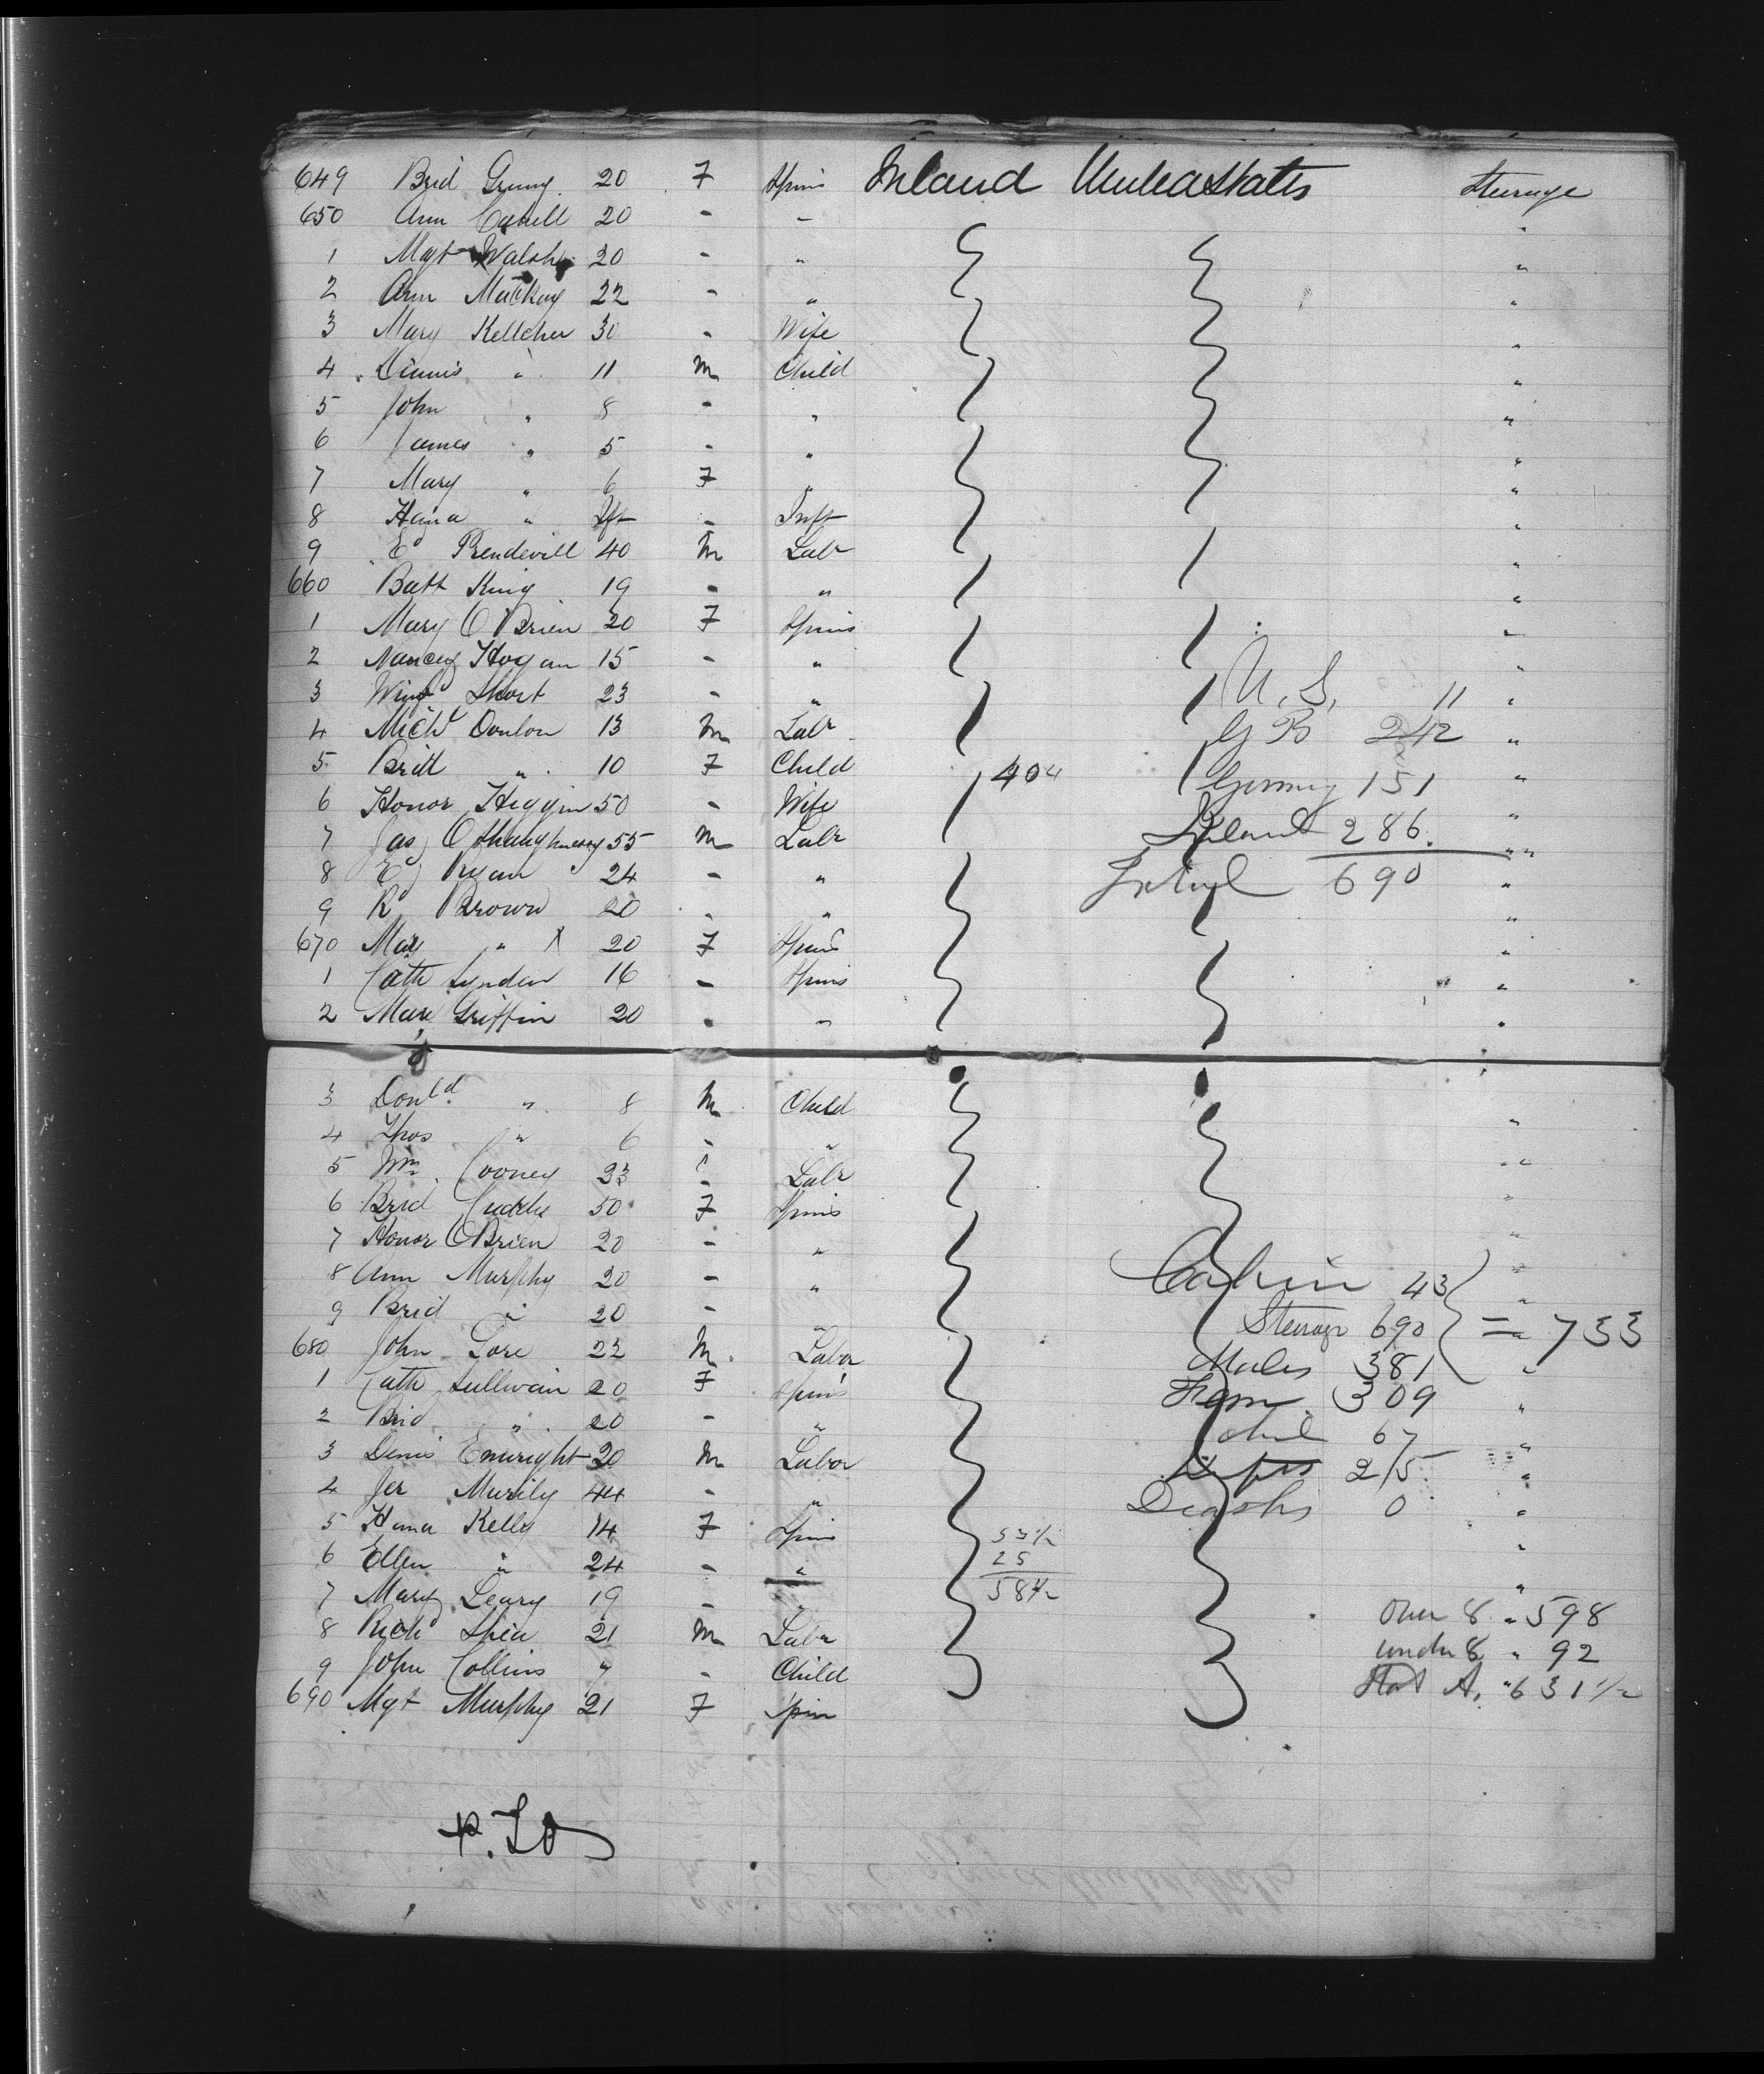 649 Brid 20 F Spins Ireland United States Steerage
650 Ann Cahill 20 - -
1 Mgt Walsh 20 - "
2 Ann Mackay 22 - "
3 Mary Kelleher 30 - Wife
4 Dinnis " 11 M Child
5 John " 8 - "
6 James " 5 - "
7 Mary " 6 F "
8 Hana " Ift - Inft
9 Ed Prendevill 40 M Labr
660 Batt King 19 - "
1 Mary O'Brien 20 F Spins
2 Nancy Hogan 15 - "
3 Winfd Short 23 - "
U.S. 11
4 Michl Donlon 13 M Labr
G B 242
5 Bridt " 10 F Child
404
Germy 151
6 Honor Higgins 50 - Wife
7 Jas O'Shaughnessy 55 M Labr
Ireland 286
8 Ed Ryan 24 - "
Total 690
9 Rd Brown 20 - "
670 Mary " X 20 F Spins
1 Cath Lynden 16 - Spins
2 Mary Griffin 20 - "
3 Donld " 8 M Child
4 Thos " 6 - "
5 Wm Cooney 23 " Labr
6 Brid 50 F Spins
7 Honor O'Brien 20 - "
8 Ann Murphy 20 - "
Cabin 43
9 Brid " 20 - "
Steerage 690 = 733
680 John Gore 22 M Labor
Males 381
1 Cath Sullivan 20 F Spins
Fem 309
2 Brid " 20 - "
Chil 67
3 Denis Enwright 20 M Labor
Infts 25
4 Jer 44 - "
Deaths 0
5 Hana Kelly 14 F Spins
6 Ellen " 24 - "
25
7 Mary Leary 19 - "
58½
Over 8 " 598
8 Richd Shea 21 M Labr
under 8 " 92
9 John Collins 7 - Child
Stat A. " 631½
690 Mgt Murphy 21 F Spin
P.T.O